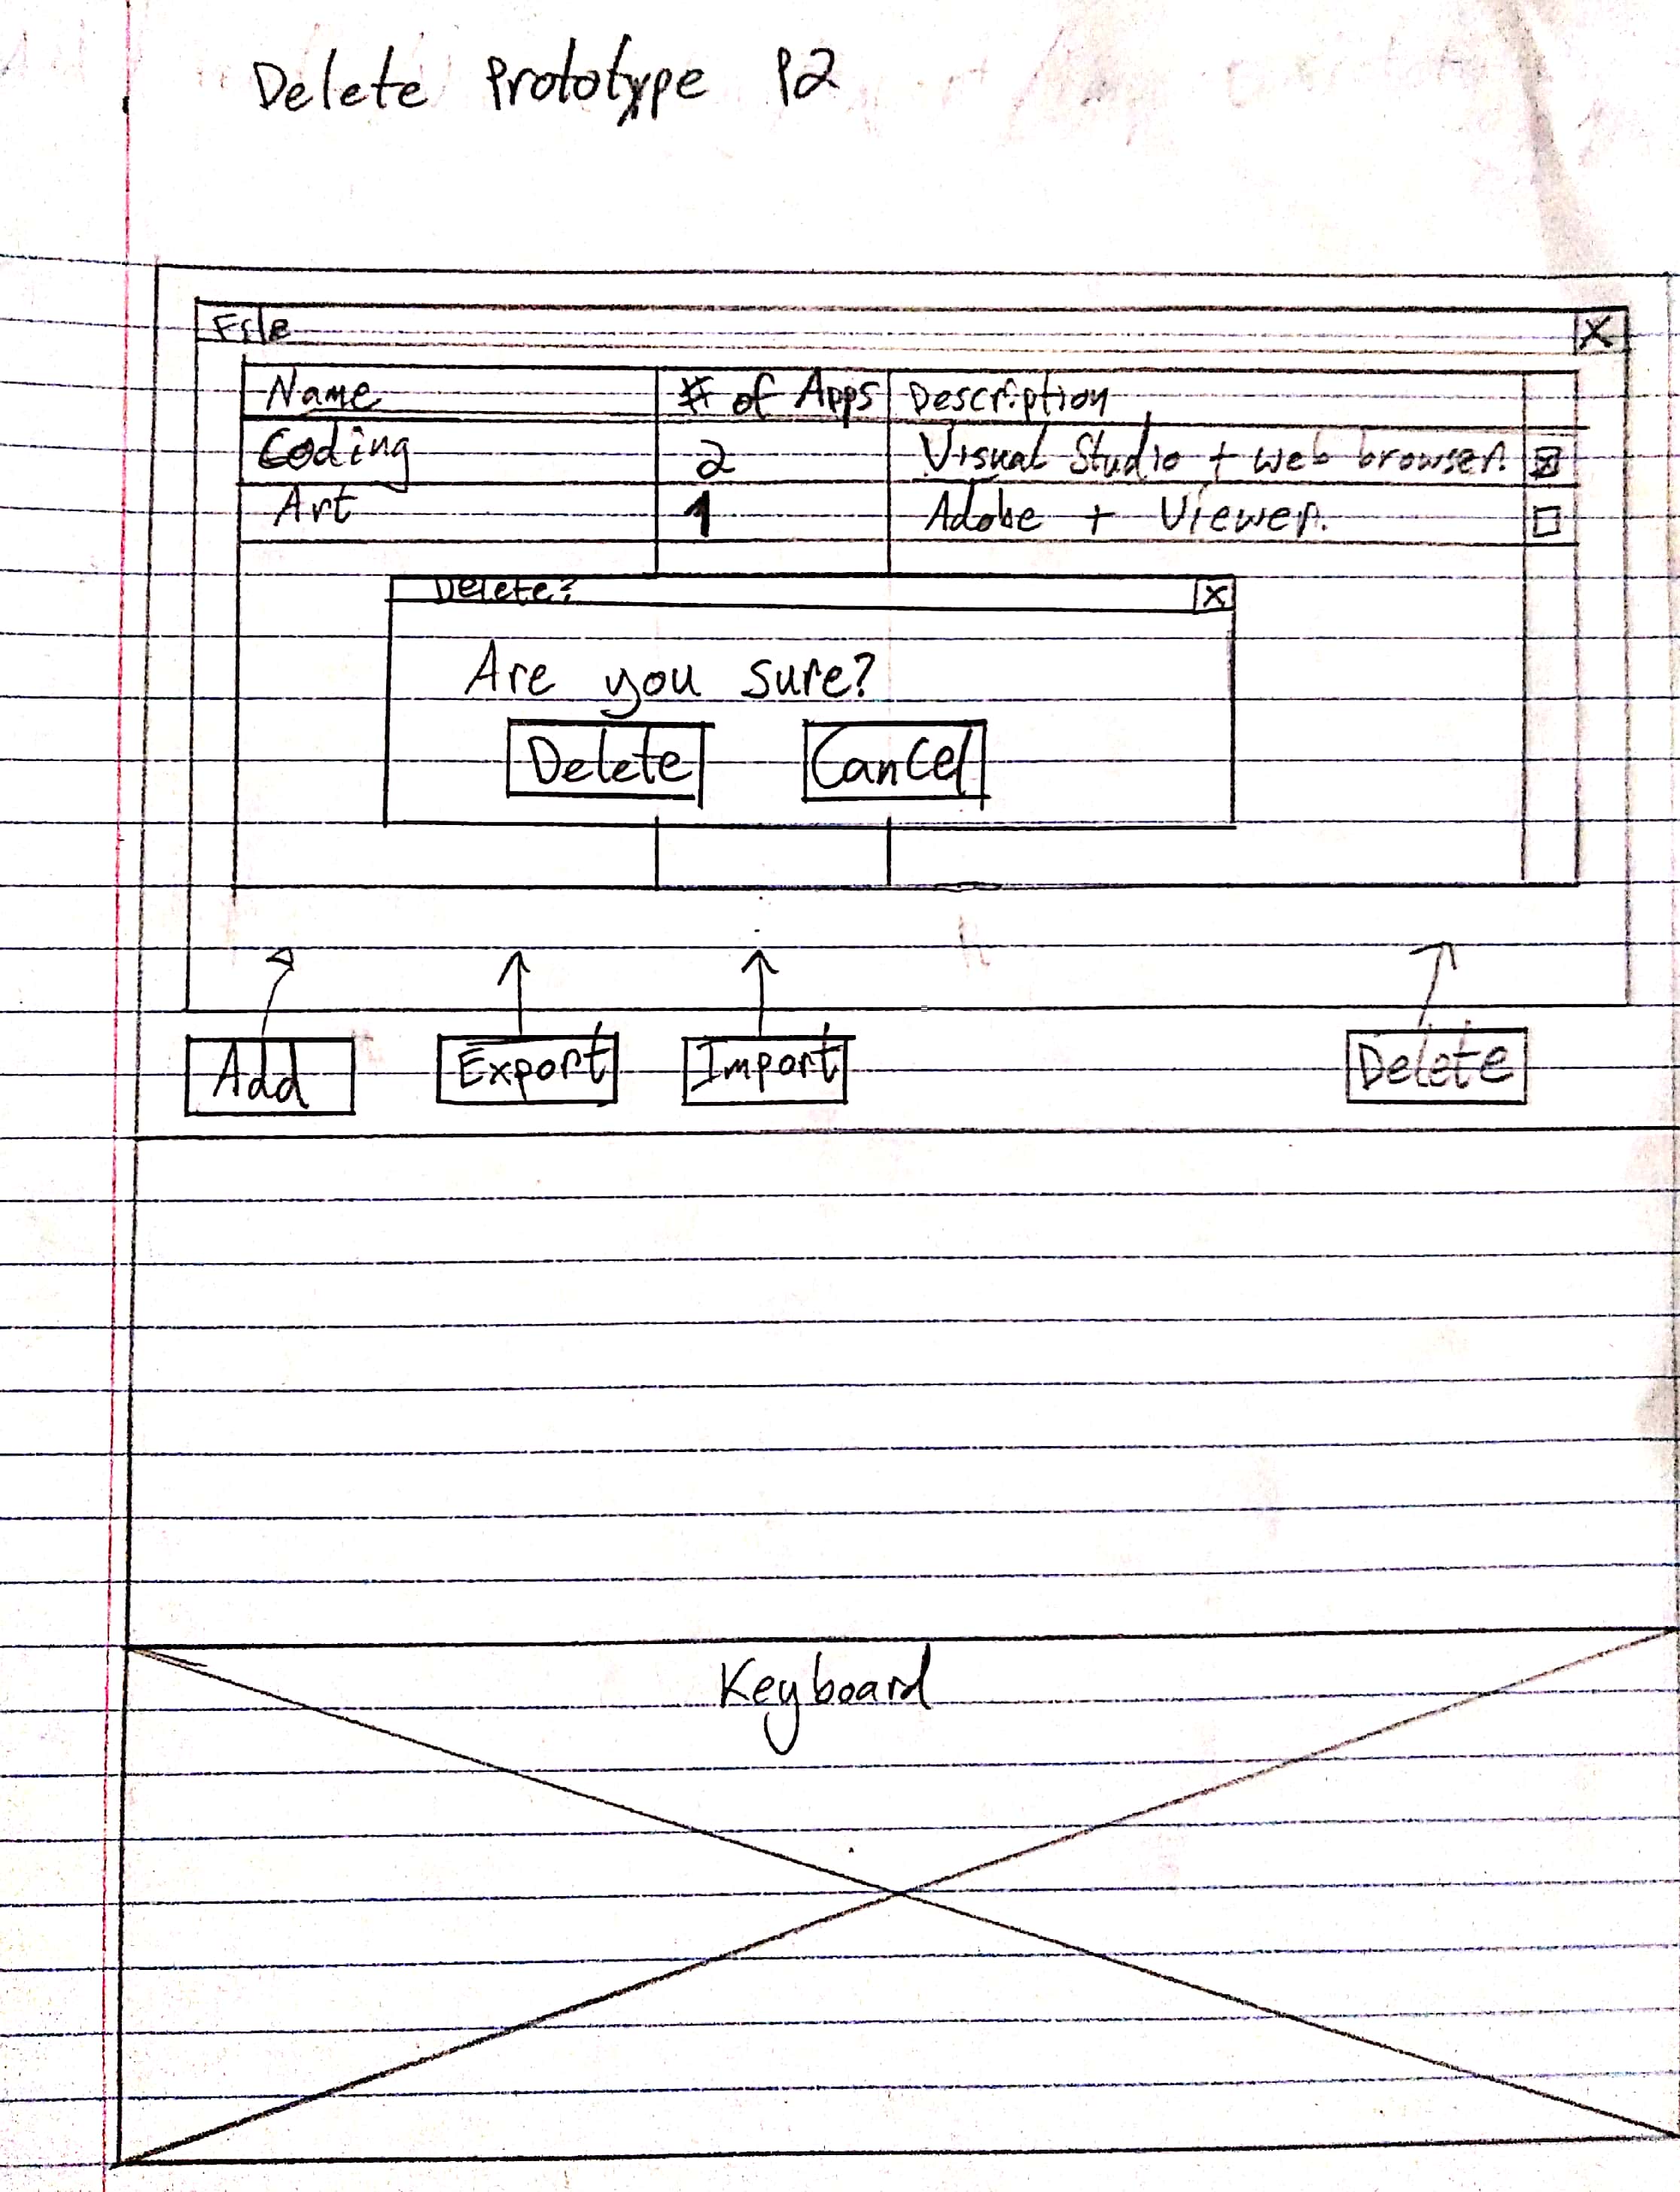 Delete Prototype P2
File X
Name # of Apps Description
Coding 2 Visual Studio + web browser.
Art 1 Adobe + Viewer.
Delete? X
Are you sure?
Delete Cancel
Add Export Import Delete
Keyboard